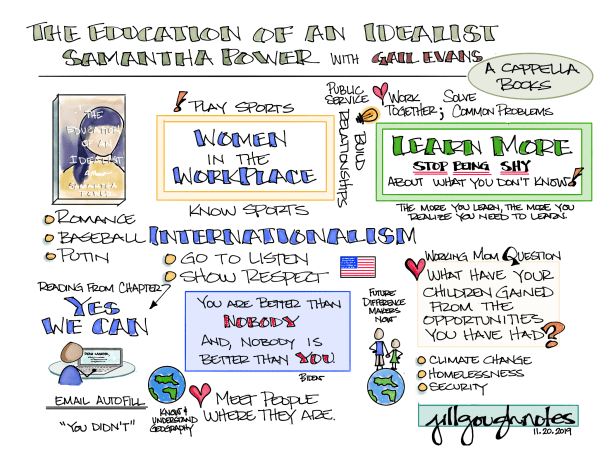 THE EDUCATION OF AN IDEALIST
SAMANTHA POWER WITH GAIL EVANS
A CAPPELLA
BOOKS
THE
EDUCATION
OF AN
IDEALIST
ROMANCE
BASEBALL
PUTIN
! PLAY SPORTS
WOMEN
IN THE
WORKPLACE
KNOW SPORTS
PUBLIC
SERVICE
BUILD
RELATIONSHIPS
WORK
TOGETHER; SOLVE
COMMON PROBLEMS
LEARN MORE
STOP BEING SHY
ABOUT WHAT YOU DON'T KNOW!
THE MORE YOU LEARN, THE MORE YOU
REALIZE YOU NEED TO LEARN.
INTERNATIONALISM
GO TO LISTEN
SHOW RESPECT
READING FROM CHAPTER
YES
WE CAN
EMAIL AUTOFILL
"YOU DIDN'T"
YOU ARE BETTER THAN
NOBODY
AND, NOBODY IS
BETTER THAN YOU
BIDEN
KNOW &
UNDERSTAND
GEOGRAPHY
MEET PEOPLE
WHERE THEY ARE.
FUTURE
DIFFERENCE
MAKERS
NOW
WORKING MOM QUESTION
WHAT HAVE YOUR
CHILDREN GAINED
FROM THE
OPPORTUNITIES
YOU HAVE HAD?
CLIMATE CHANGE
HOMELESSNESS
SECURITY
jillgoughnotes
11.20.2019